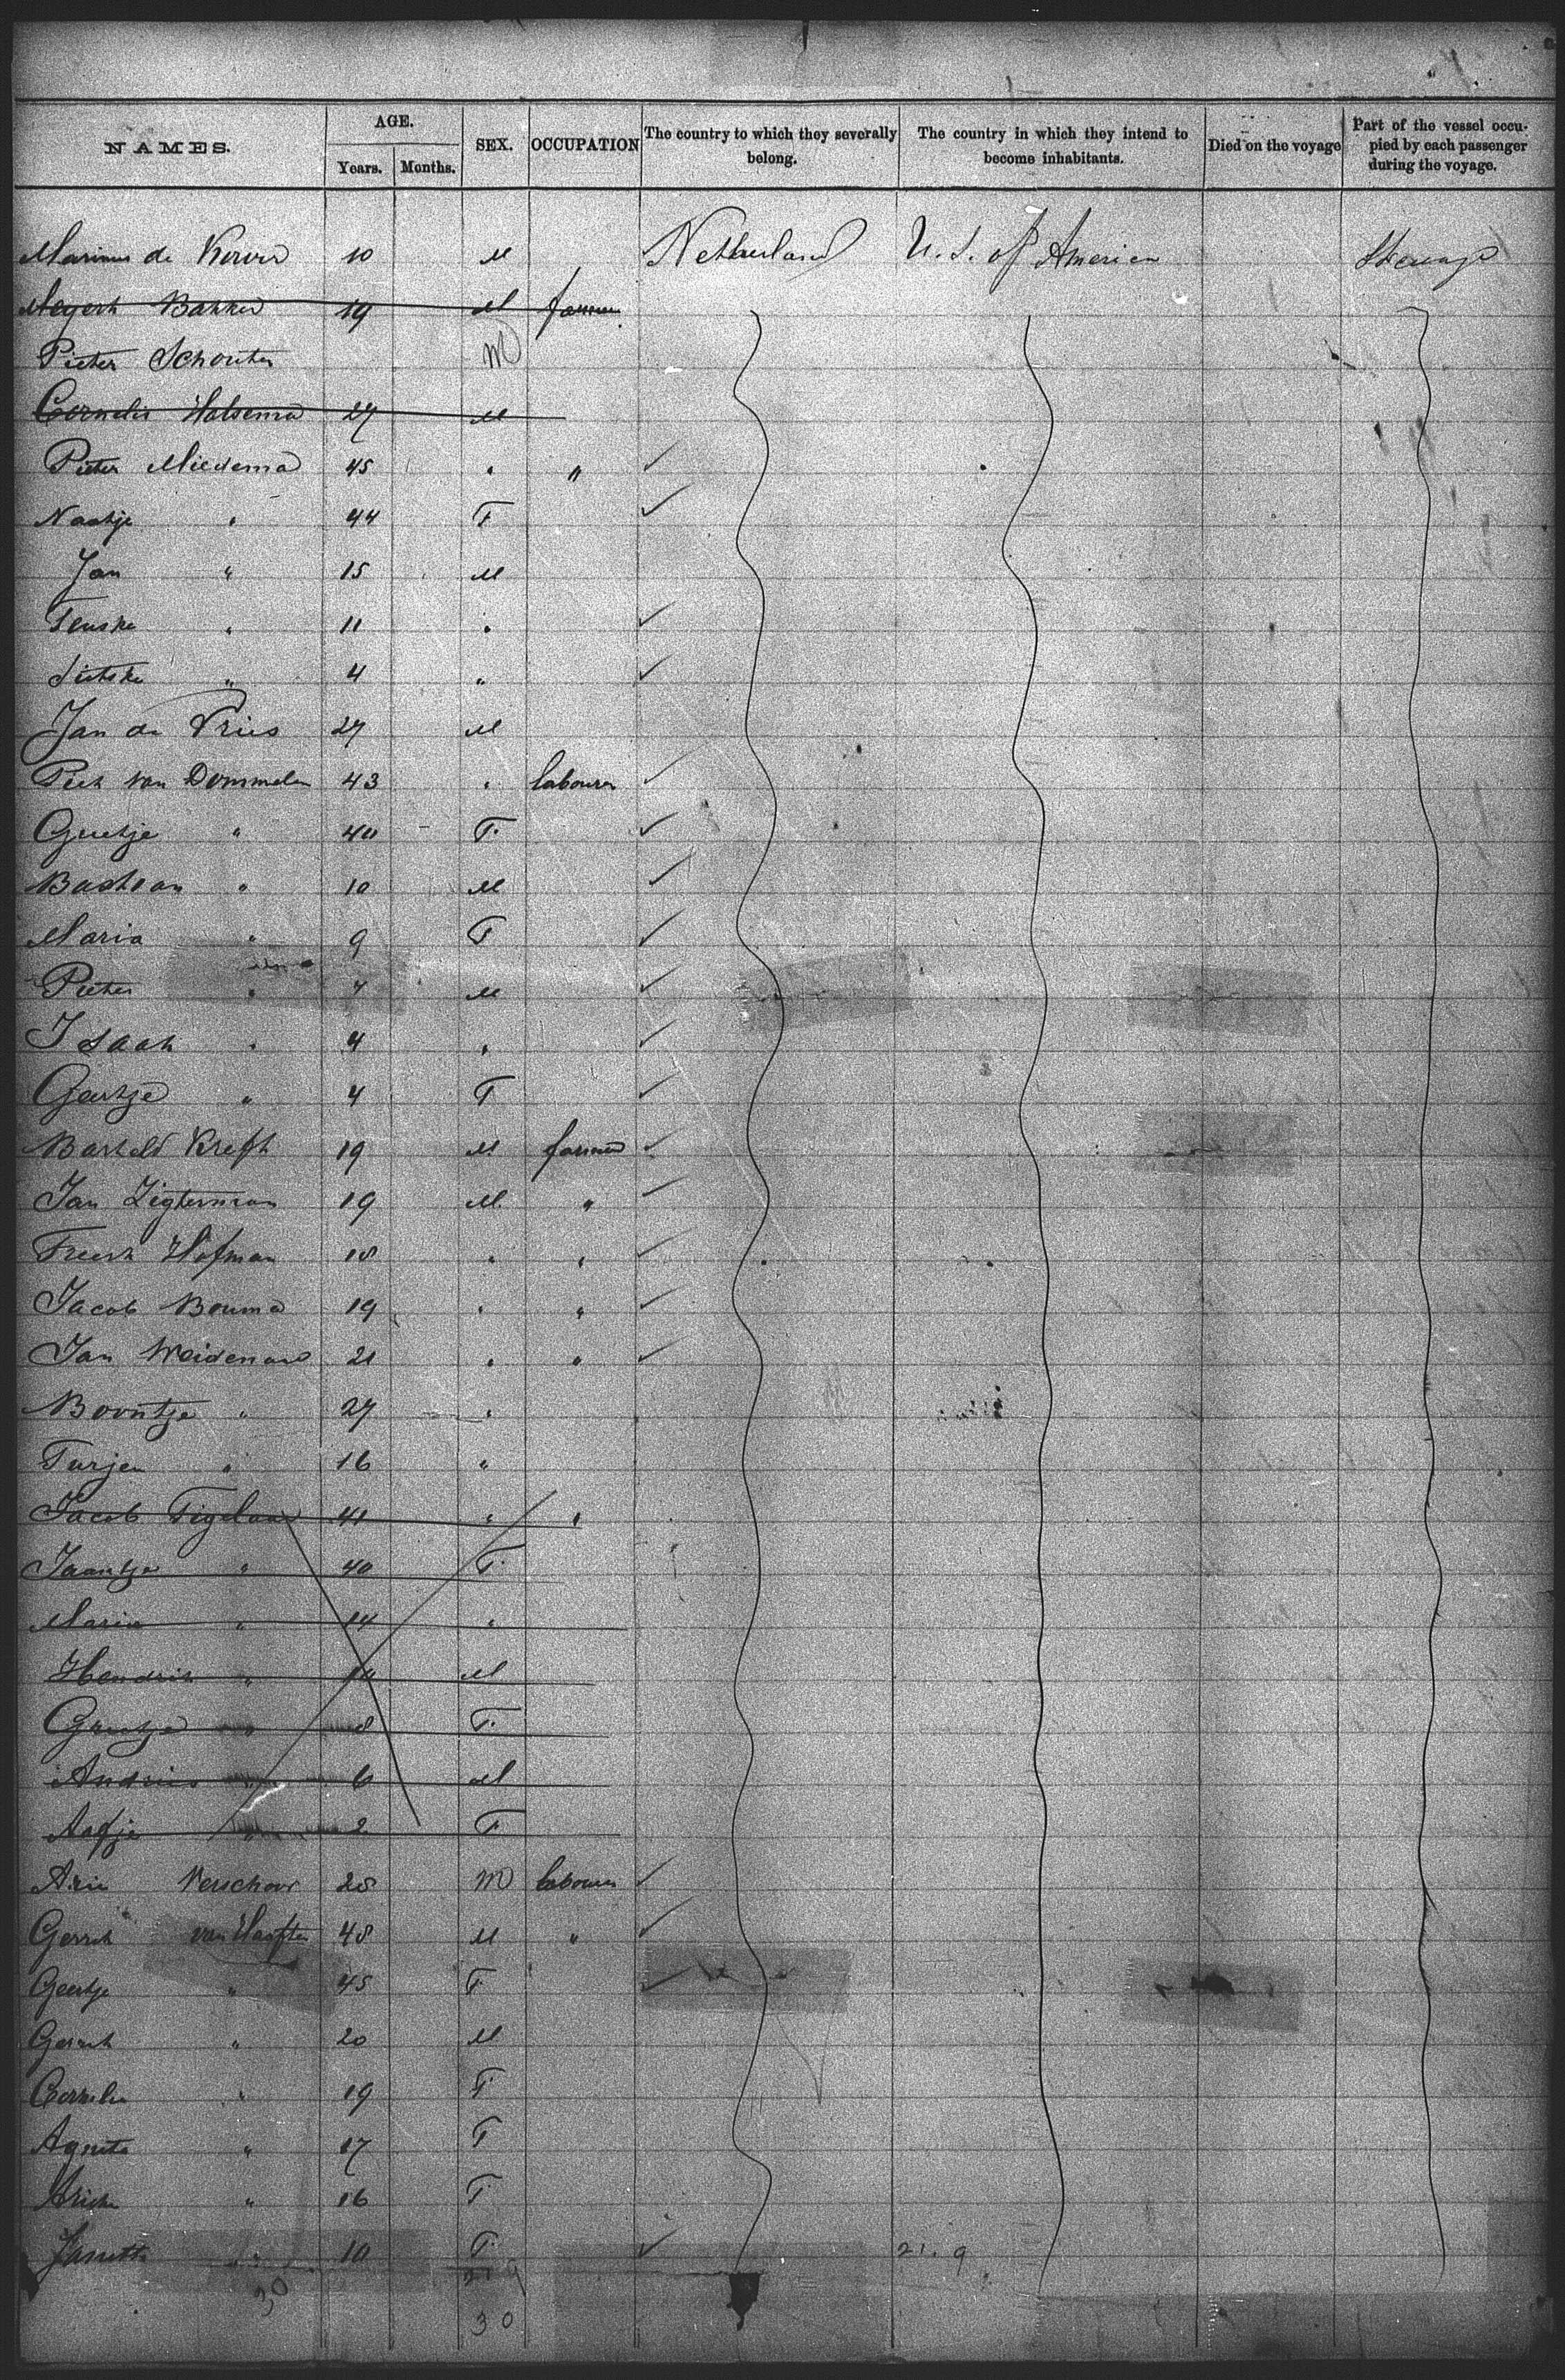 NAMES. AGE. SEX. OCCUPATION The country to which they severally belong. The country in which they intend to become inhabitants. Died on the voyage Part of the vessel occupied by each passenger during the voyage.
Years. Months.
Marinus de Korver 10 M Netherland U. S. of America Steerage
Meyert Bakker 19 M farmer
Pieter Schouten M
Cornelis Halsema 27 M
Pieter Miedema 45 " "
Naatje " 44 F
Jan " 15 M
Tenske " 11 "
Sietske " 4 "
Jan de Vries 27 M
Piet van Dommelen 43 " labourer
Grietje " 40 F
Bastiaan " 10 M
Maria " 9 F
Pieter " 7 M
Isaak " 4 "
Geertje " 4 F
Barteld Kreft 19 M farmer
Jan Zigterman 19 M. "
Freerk Hofman 18 " "
Jacob Bouma 19 " "
Jan Weidenaar 21 " "
Boontje " 27 "
Turjen " 16 "
Jacob Tigelaar 41 " "
Jaantje " 40 F
Maria " 14 "
Hendrik " 10 M
Grietje " 8 F.
Andries " 6 M
Aafje " 2 F
Arie Verschoor 28 M labourer
Gerrit van Haaften 48 M "
Geertje " 45 F
Gerrit " 20 M
Cornelia " 19 F
Agneta " 17 F
Arieke " 16 F
Janette " 10 F. 21. 9
30
21 9
30